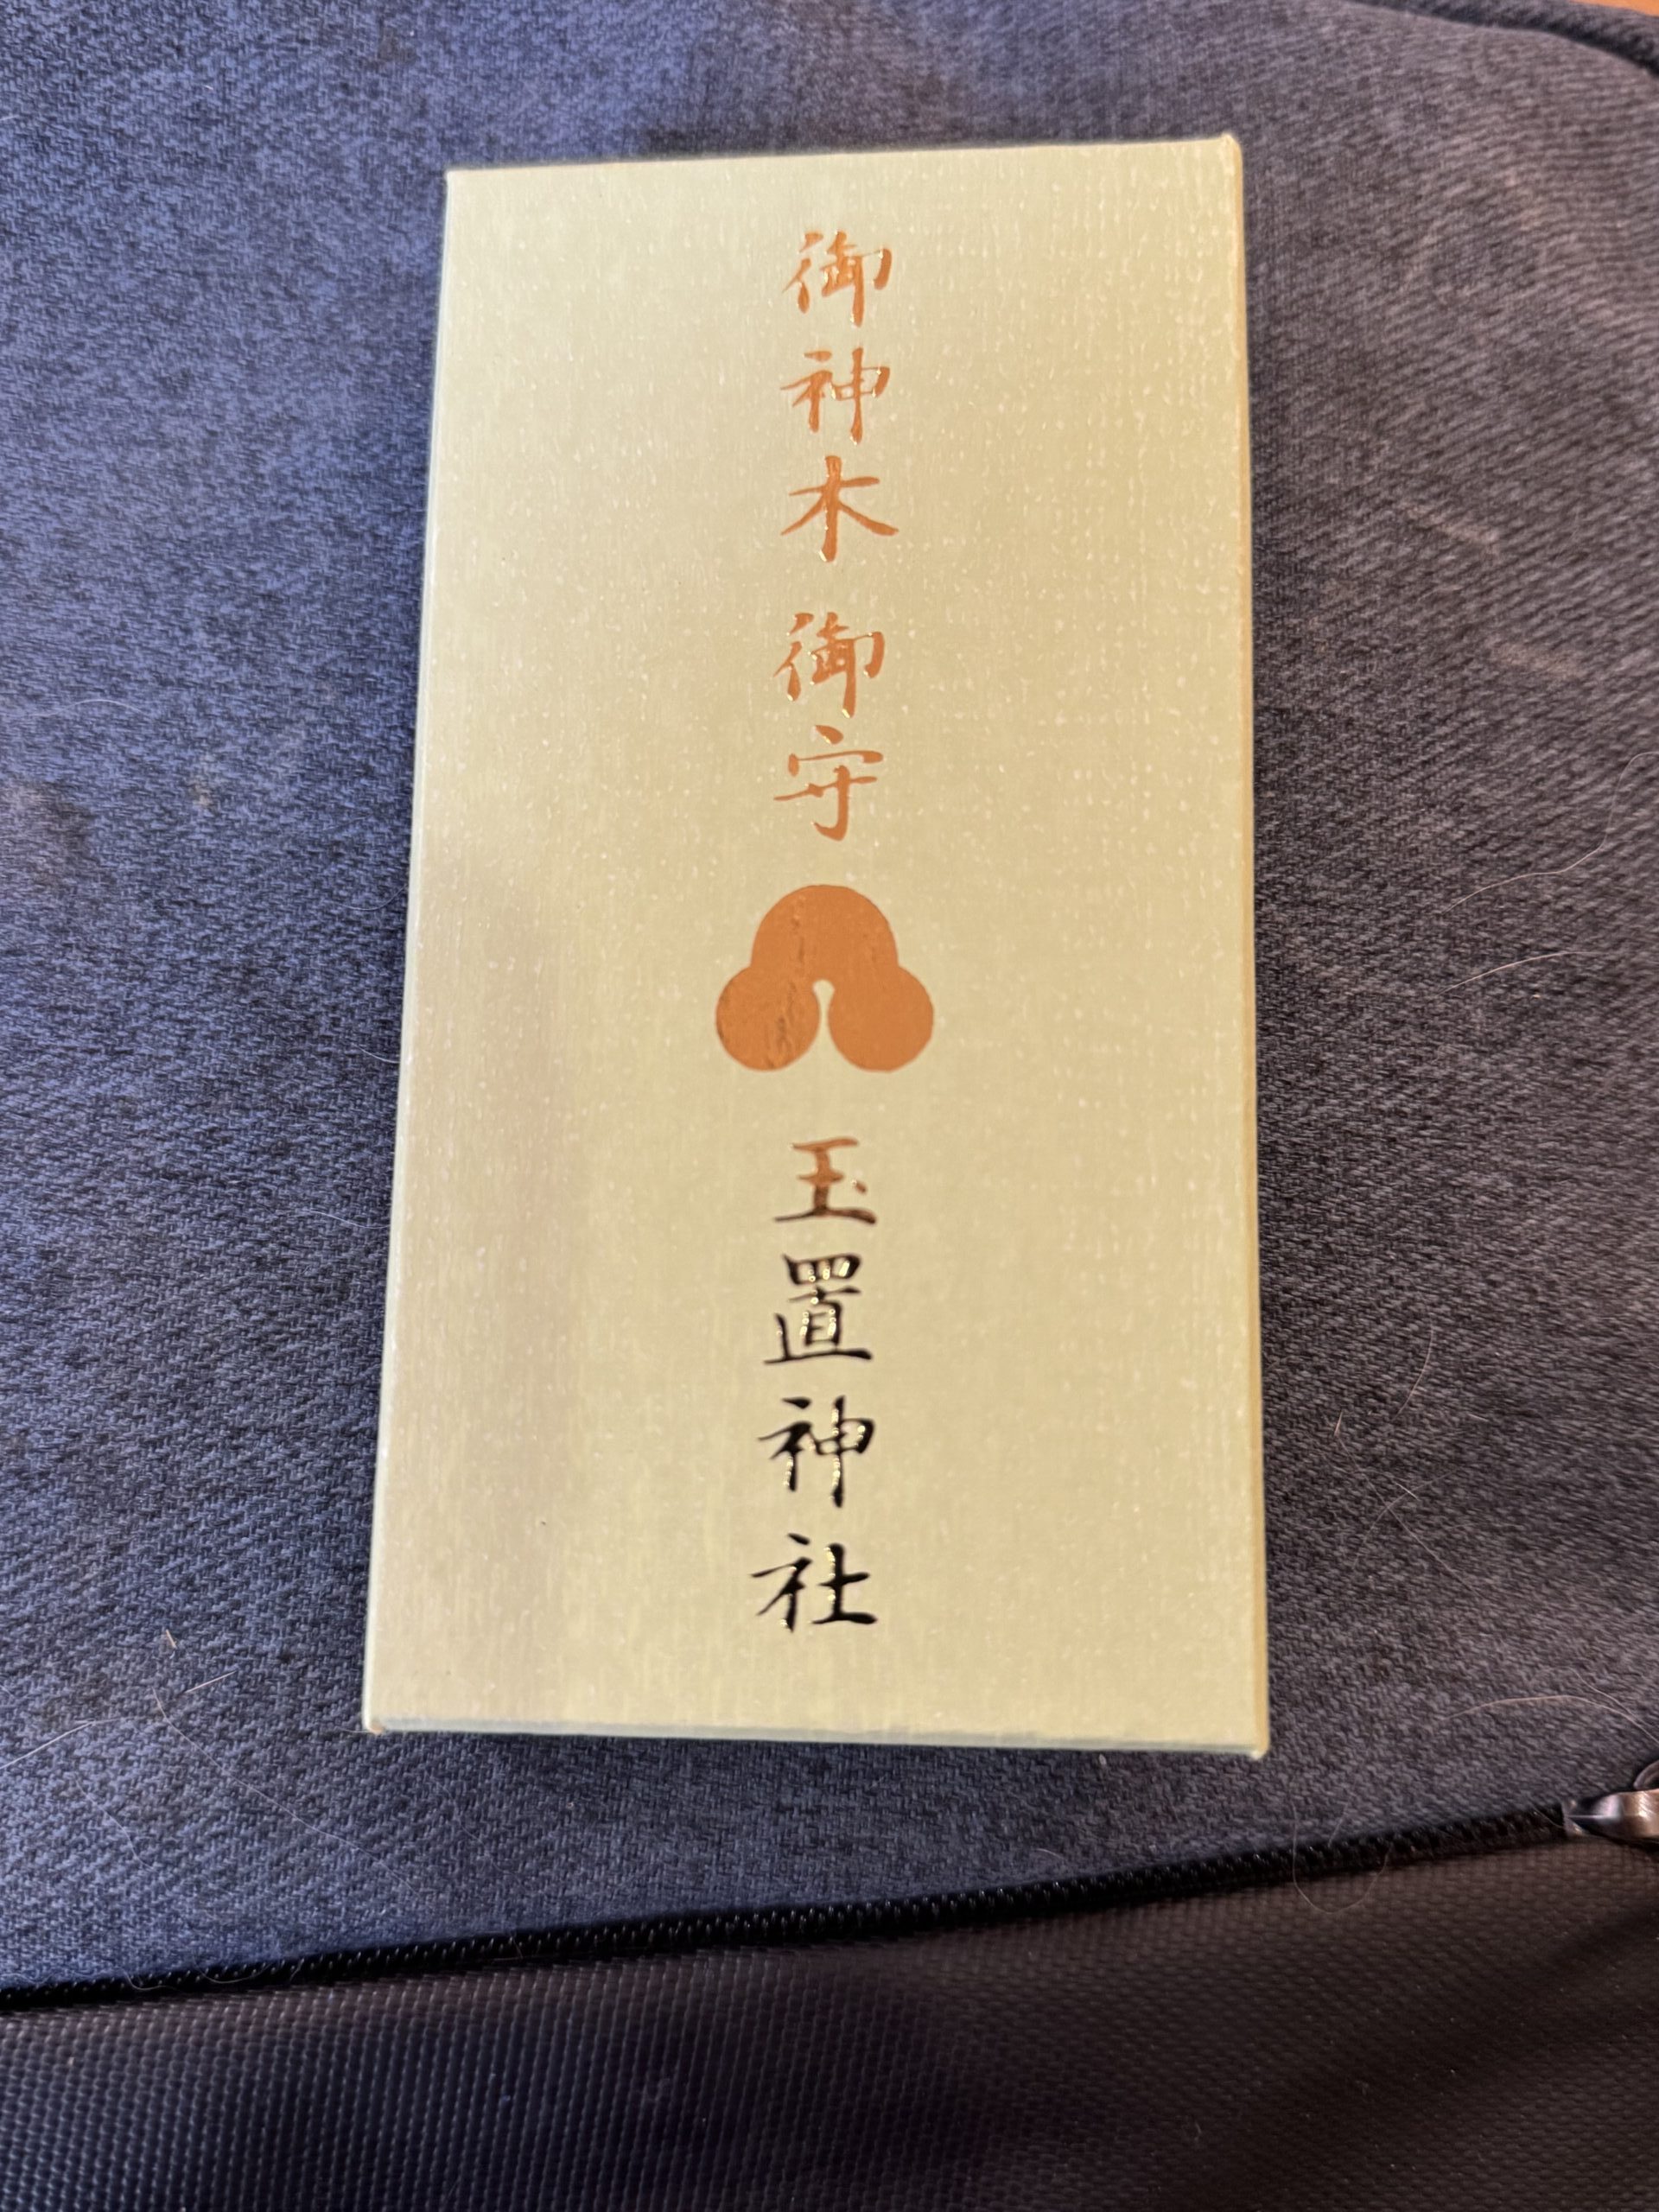 御神木 御守
玉置神社